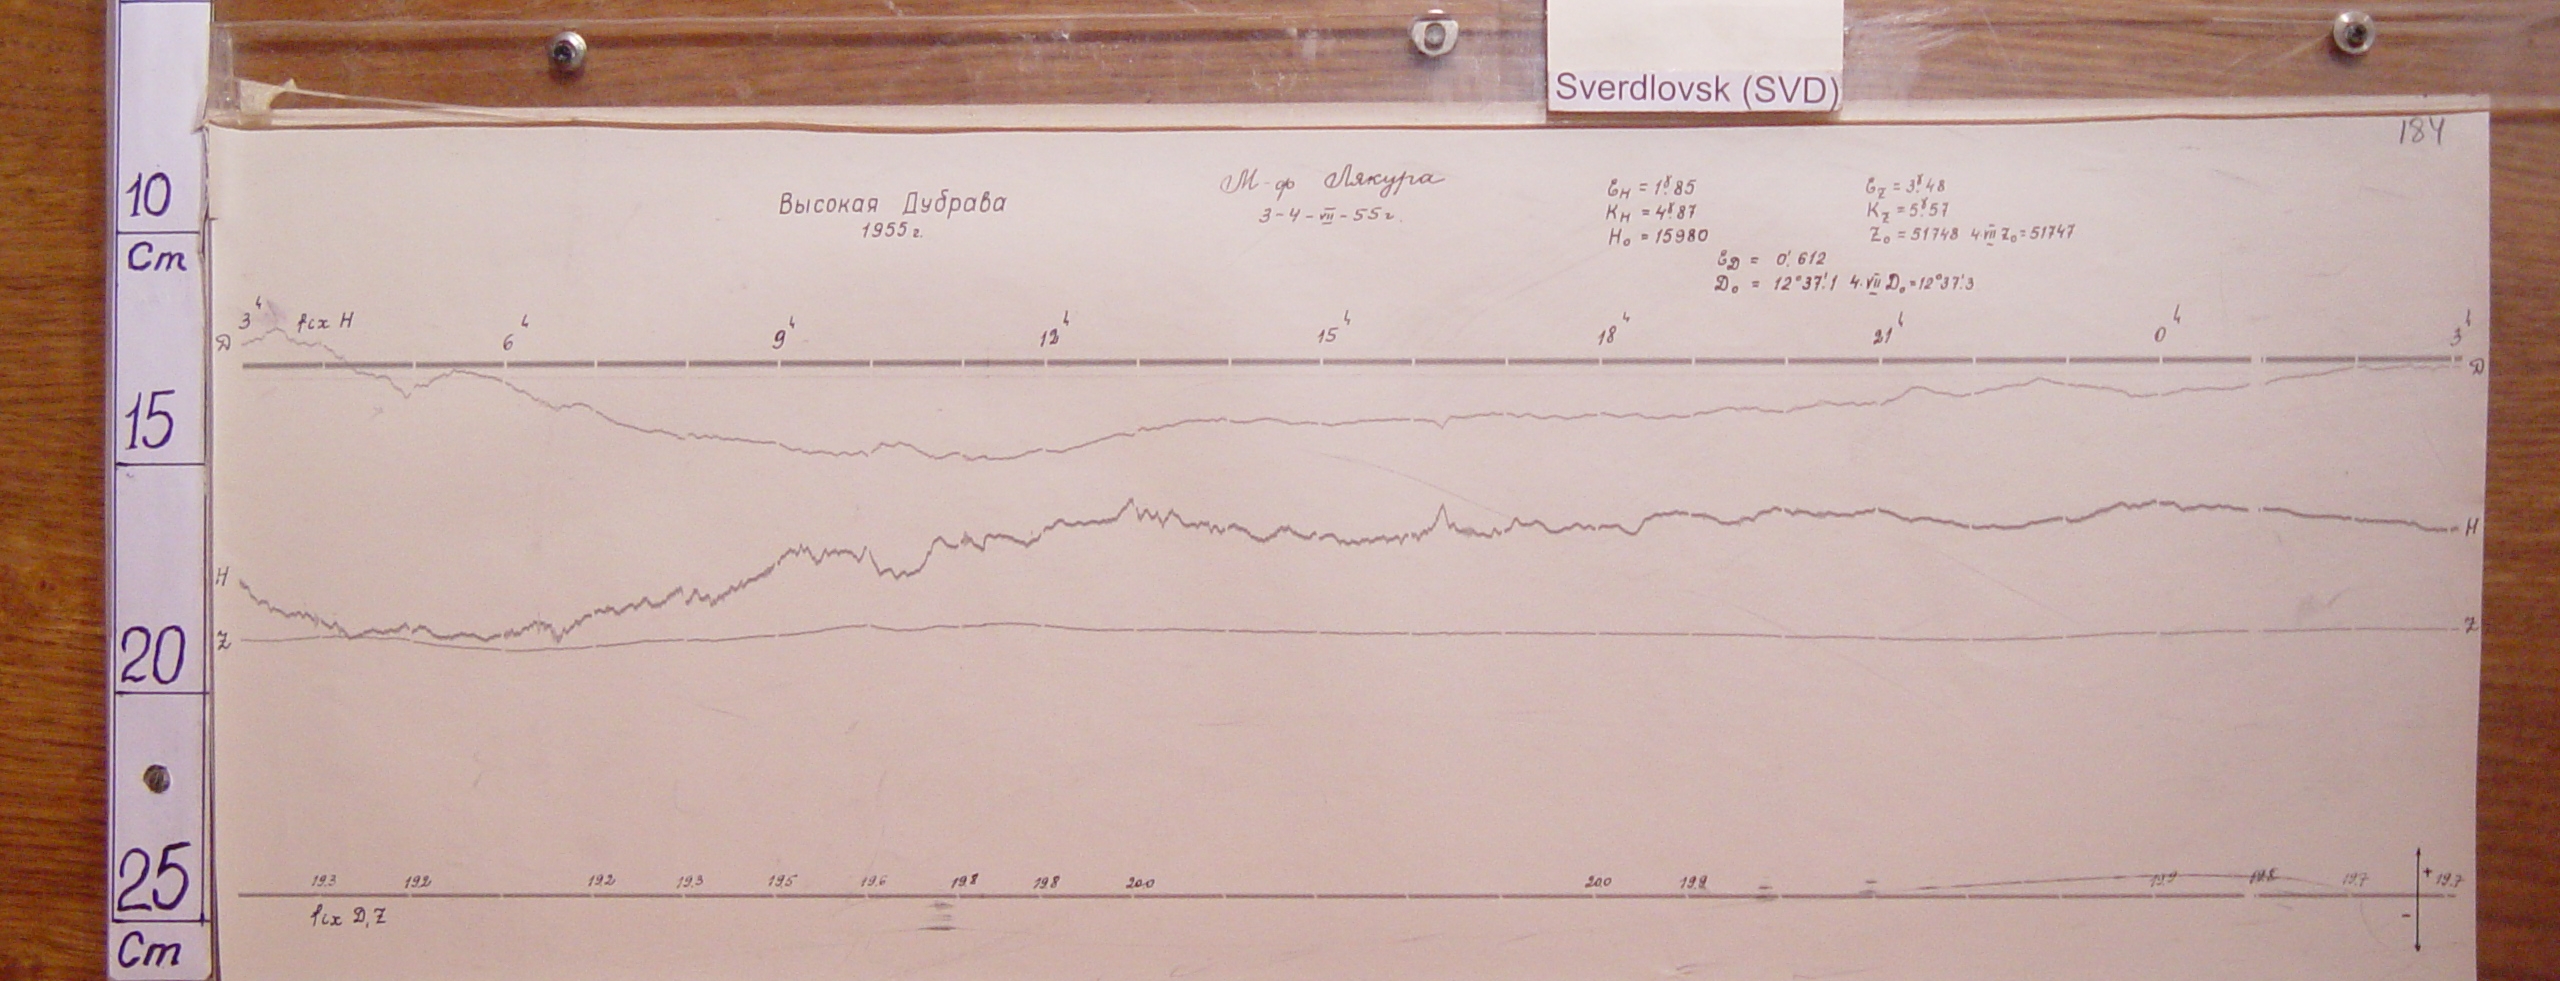 Sverdlovsk (SVD)
184
Высокая Дубрава
1955 г.
М-ф Лякура
3-4-VII-55 г.
εH = 1γ.85
KH = 4γ.87
H₀ = 15980
εZ = 3γ.48
KZ = 5γ.57
Z₀ = 51748 4.VII Z₀=51747
εD = 0'.612
D₀ = 12°37'.1 4.VII D₀=12°37'.3
3ч 6ч 9ч 12ч 15ч 18ч 21ч 0ч 3ч
D
D
H
H
Z
Z
19.3 19.2 19.2 19.3 19.5 19.6 19.8 19.8 20.0 20.0 19.9 19.9 19.8 19.7 19.7
+
-
10
Cm
15
20
25
Cm